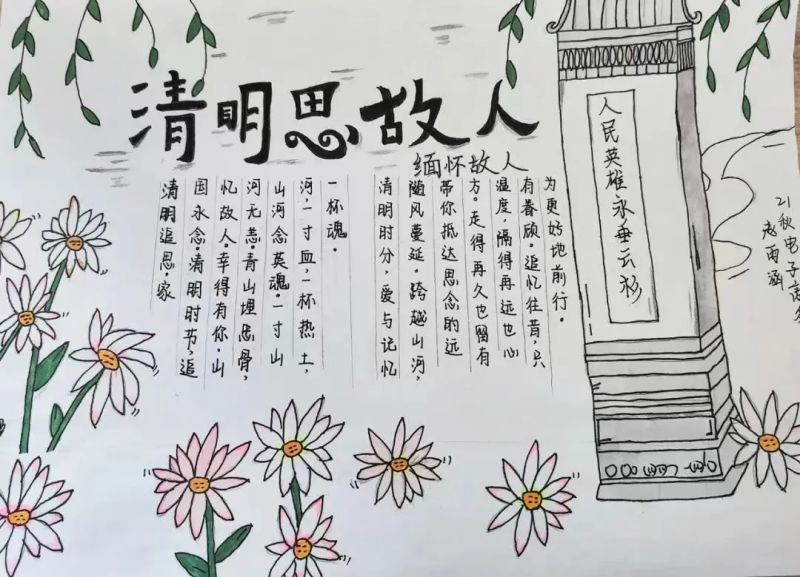 清明思故人
缅怀故人
清明追思·家
国永念·清明时节,追
忆故人·幸得有你·山
河无恙·青山埋忠骨,
山河念英魂·一寸山
河,一寸血,一杯热土,
一杯魂。
清明时分,爱与记忆
随风蔓延。跨越山河,
带你抵达思念的远
方。走得再久也留有
温度,隔得再远也心
有眷顾。追忆往昔,只
为更好地前行。
人民英雄永垂
21秋电子
雨涵